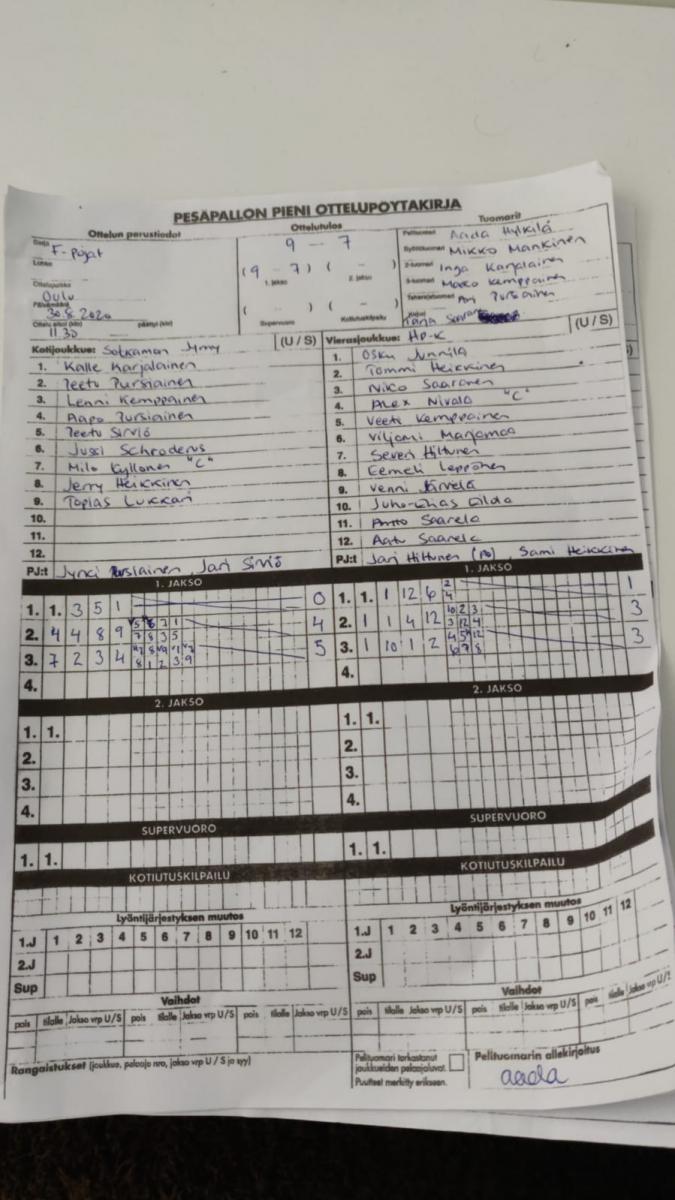 PESÄPALLON PIENI OTTELUPÖYTÄKIRJA
Ottelun perustiedot Ottelutulos Tuomarit
Sarja F-pojat
Lohko
Ottelupaikka Oulu
Päivämäärä 30.8.2020
Ottelu alkoi (klo) 11.30 päättyi (klo)
9 - 7
(9 - 7) ( - )
1. jakso 2. jakso
( - ) ( - )
Supervuoro Kotiutuskilpailu
Pelituomari Aada Hylkilä
Syöttötuomari Mikko Mankinen
2-tuomari Inga Karjalainen
3-tuomari Marko Kemppainen
Takarajatuomari Pursiainen
Kirjuri Tarja
Kotijoukkue: Sotkamon Jymy (U / S)
1. Kalle Karjalainen
2. Peetu Pursiainen
3. Lenni Kemppainen
4. Aapo Pursiainen
5. Peetu Sirviö
6. Jussi Schroderus
7. Milo Kyllönen "C"
8. Jerry Heikkinen
9. Topias Lukkari
10.
11.
12.
PJ:t Jyrki Pursiainen, Jari Sirviö
Vierasjoukkue: HP-K (U / S)
1. Osku Junnila
2. Tommi Heikkinen
3. Niko Saaranen
4. Alex Nivala "C"
5. Veeti Kemppainen
6. Viljami Marjomaa
7. Severi Hiltunen
8. Eemeli Leppänen
9. Venni Järvelä
10. Juho-Elias Gilda
11. Antto Saarela
12. Aatu Saarela
PJ:t Jari Hiltunen (PJ), Sami Heikkinen
1. JAKSO
1. 1. 3 5 1 0
2. 4 4 8 9 4
3. 7 2 3 4 5
4.
2. JAKSO
1. 1.
2.
3.
4.
SUPERVUORO
1. 1.
KOTIUTUSKILPAILU
1. JAKSO
1. 1. 1 12 6 2 4 1
2. 1 1 4 12 10 2 3 3 12 4 3
3. 1 10 1 2 4 5 12 6 7 8 3
4.
2. JAKSO
1. 1.
2.
3.
4.
SUPERVUORO
1. 1.
KOTIUTUSKILPAILU
Lyöntijärjestyksen muutos
1.J 1 2 3 4 5 6 7 8 9 10 11 12
2.J
Sup
Lyöntijärjestyksen muutos
1.J 1 2 3 4 5 6 7 8 9 10 11 12
2.J
Sup
Vaihdot
pois tilalle Jakso vrp U/S pois tilalle Jakso vrp U/S pois tilalle Jakso vrp U/S
Vaihdot
pois tilalle Jakso vrp U/S pois tilalle Jakso vrp U/S pois tilalle Jakso vrp U/S
Rangaistukset (joukkue, pelaaja nro, jakso vrp U / S ja syy)
Pelituomari tarkastanut
joukkueiden pelaajaluvat.
Puutteet merkitty erikseen.
Pelituomarin allekirjoitus
aada